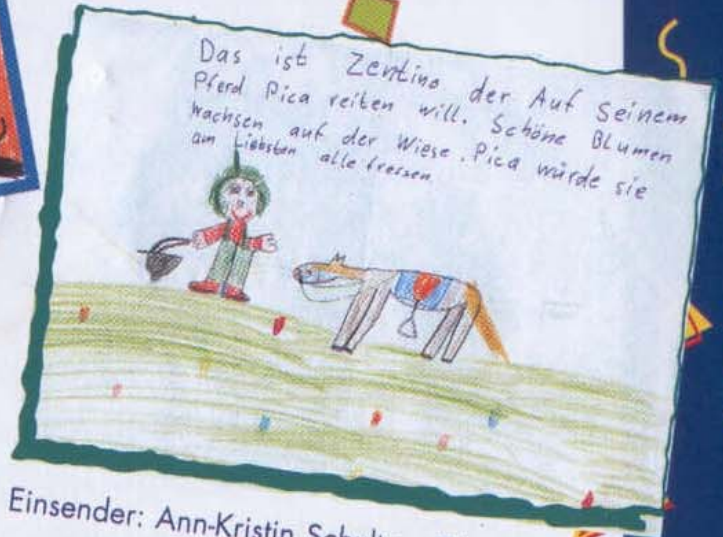 Das ist Zentino der Auf Seinem
Pferd Pica reiten will. Schöne Blumen
wachsen auf der Wiese. Pica würde sie
am Liebsten alle fressen
Einsender: Ann-Kristin